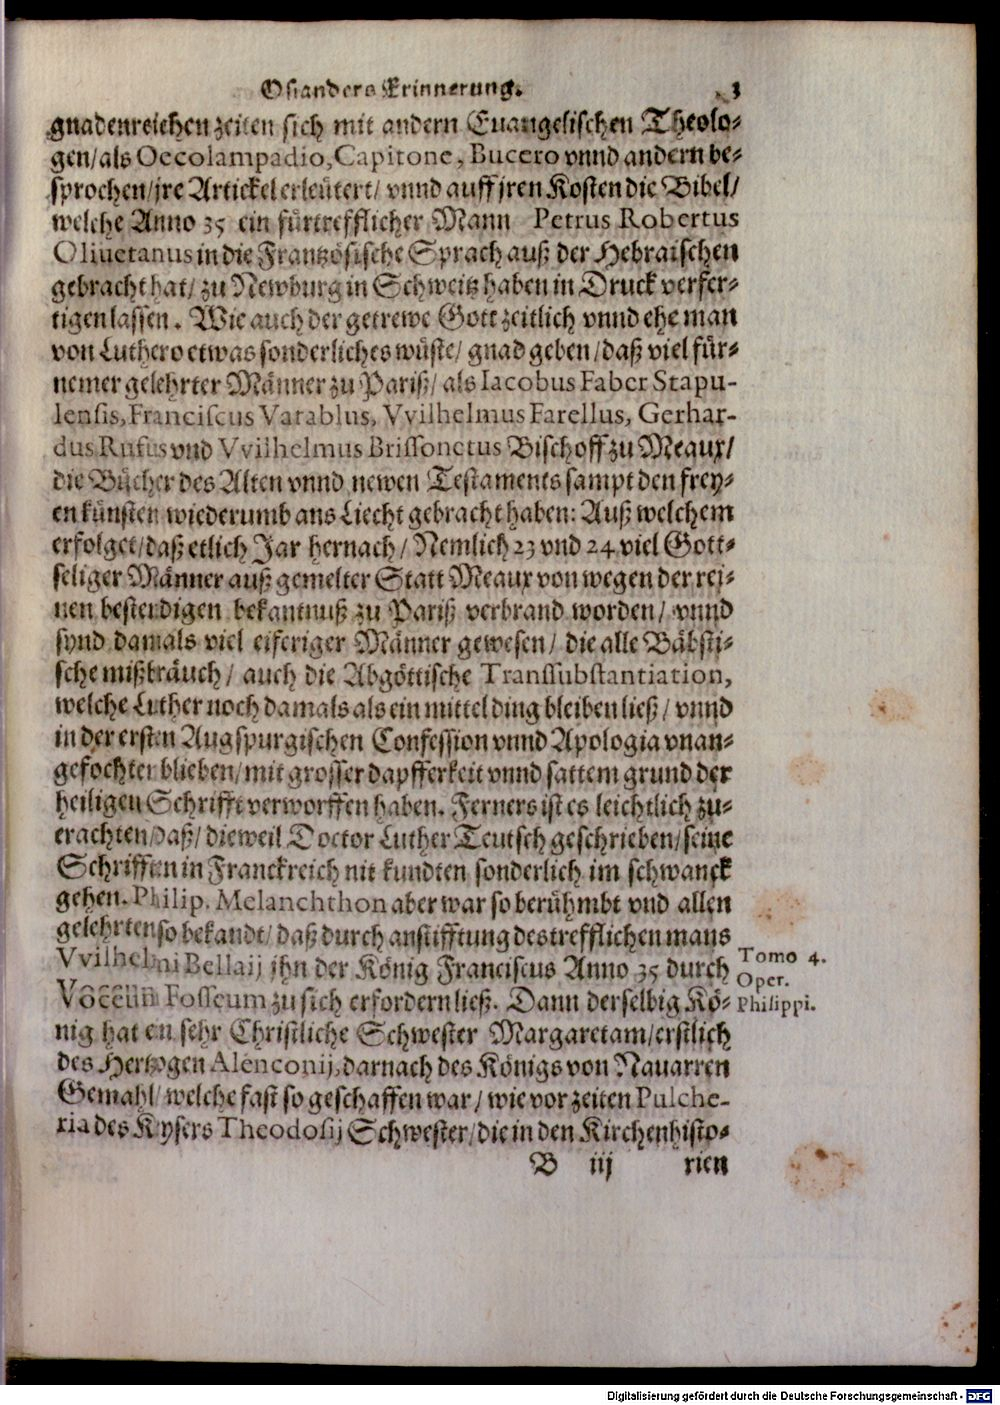 Osianders Erinnerung. 3
gnadenreichen zeiten sich mit andern Euangelischen Theolo-
gen/als Oecolampadio, Capitone, Bucero vnnd andern be-
sprochen/jre Artickel erleütert/ vnnd auff jren Kosten die Bibel/
welche Anno 35 ein fürtrefflicher Mann Petrus Robertus
Oliuetanus in die Frantzösische Sprach auß der Hebraischen
gebracht hat/ zu Newburg in Schweitz haben in Druck verfer-
tigen lassen. Wie auch der getrewe Gott zeitlich vnnd ehe man
von Luthero etwas sonderliches wüste/ gnad geben/daß viel für-
nemer gelehrter Männer zu Pariß/ als Iacobus Faber Stapu-
lensis, Franciscus Vatablus, VVilhelmus Farellus, Gerhar-
dus Rufus vnd VVilhelmus Brissonetus Bischoff zu Meaux/
die Bücher des Alten vnnd newen Testaments sampt den frey-
en künsten wiederumb ans Liecht gebracht haben: Auß welchem
erfolget/daß etlich Jar hernach/ Nemlich 23 vnd 24 viel Gott-
seliger Männer auß gemelter Statt Meaux von wegen der rei-
nen bestendigen bekantnuß zu Pariß verbrand worden/ vnnd
synd damals viel eiferiger Männer gewesen/ die alle Bäbsti-
sche mißbräuch/ auch die Abgöttische Transsubstantiation,
welche Luther noch damals als ein mittel ding bleiben ließ/ vnnd
in der ersten Augspurgischen Confession vnnd Apologia vnan-
gefochten blieben/mit grosser dapfferkeit vnnd sattem grund der
heiligen Schrifft verworffen haben. Ferners ist es leichtlich zu-
erachten/daß/ dieweil Doctor Luther Teutsch geschrieben/seine
Schrifften in Franckreich nit kundten sonderlich im schwanck
gehen. Philip. Melanchthon aber war so berühmbt vnd allen
gelehrten so bekandt/ daß durch anstifftung des trefflichen mans
VVilhelmi Bellaij jhn der König Franciscus Anno 35 durch
Vocelin Fosseum zu sich erfordern ließ. Dann derselbig Kö-
nig hat en sehr Christliche Schwester Margaretam/erstlich
des Hertzogen Alenconij, darnach des Königs von Nauarren
Gemahl/ welche fast so geschaffen war/ wie vor zeiten Pulche-
ria des Kysers Theodosij Schwester/die in den Kirchenhisto-
B iij rien
Tomo 4.
Oper.
Philippi.
Digitalisierung gefördert durch die Deutsche Forschungsgemeinschaft - DFG